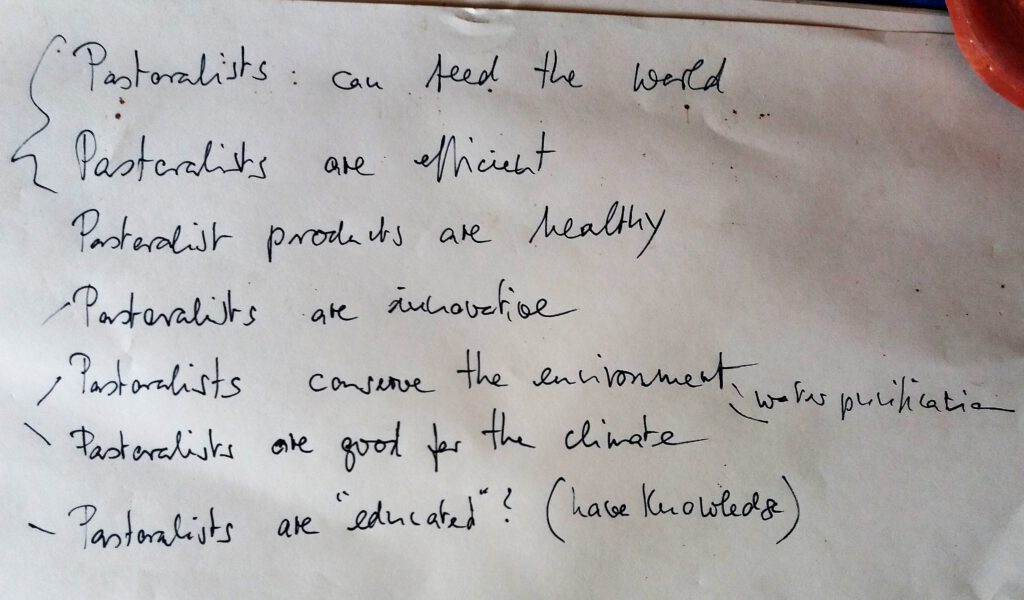 Pastoralists : can feed the world
Pastoralists are efficient
Pastoralist products are healthy
Pastoralists are innovative
Pastoralists conserve the environment
water purification
Pastoralists are good for the climate
Pastoralists are "educated"? (have knowledge)